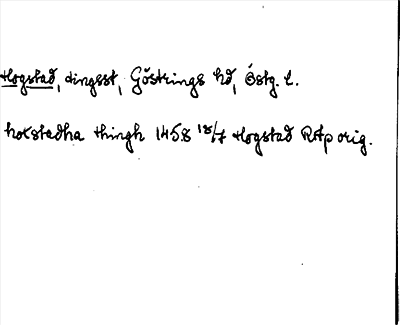 Hogstad, tingsst, Göstrings hd, Östg. l.
hokstadha thingh 1458 18/7 Hogstad Rap orig.